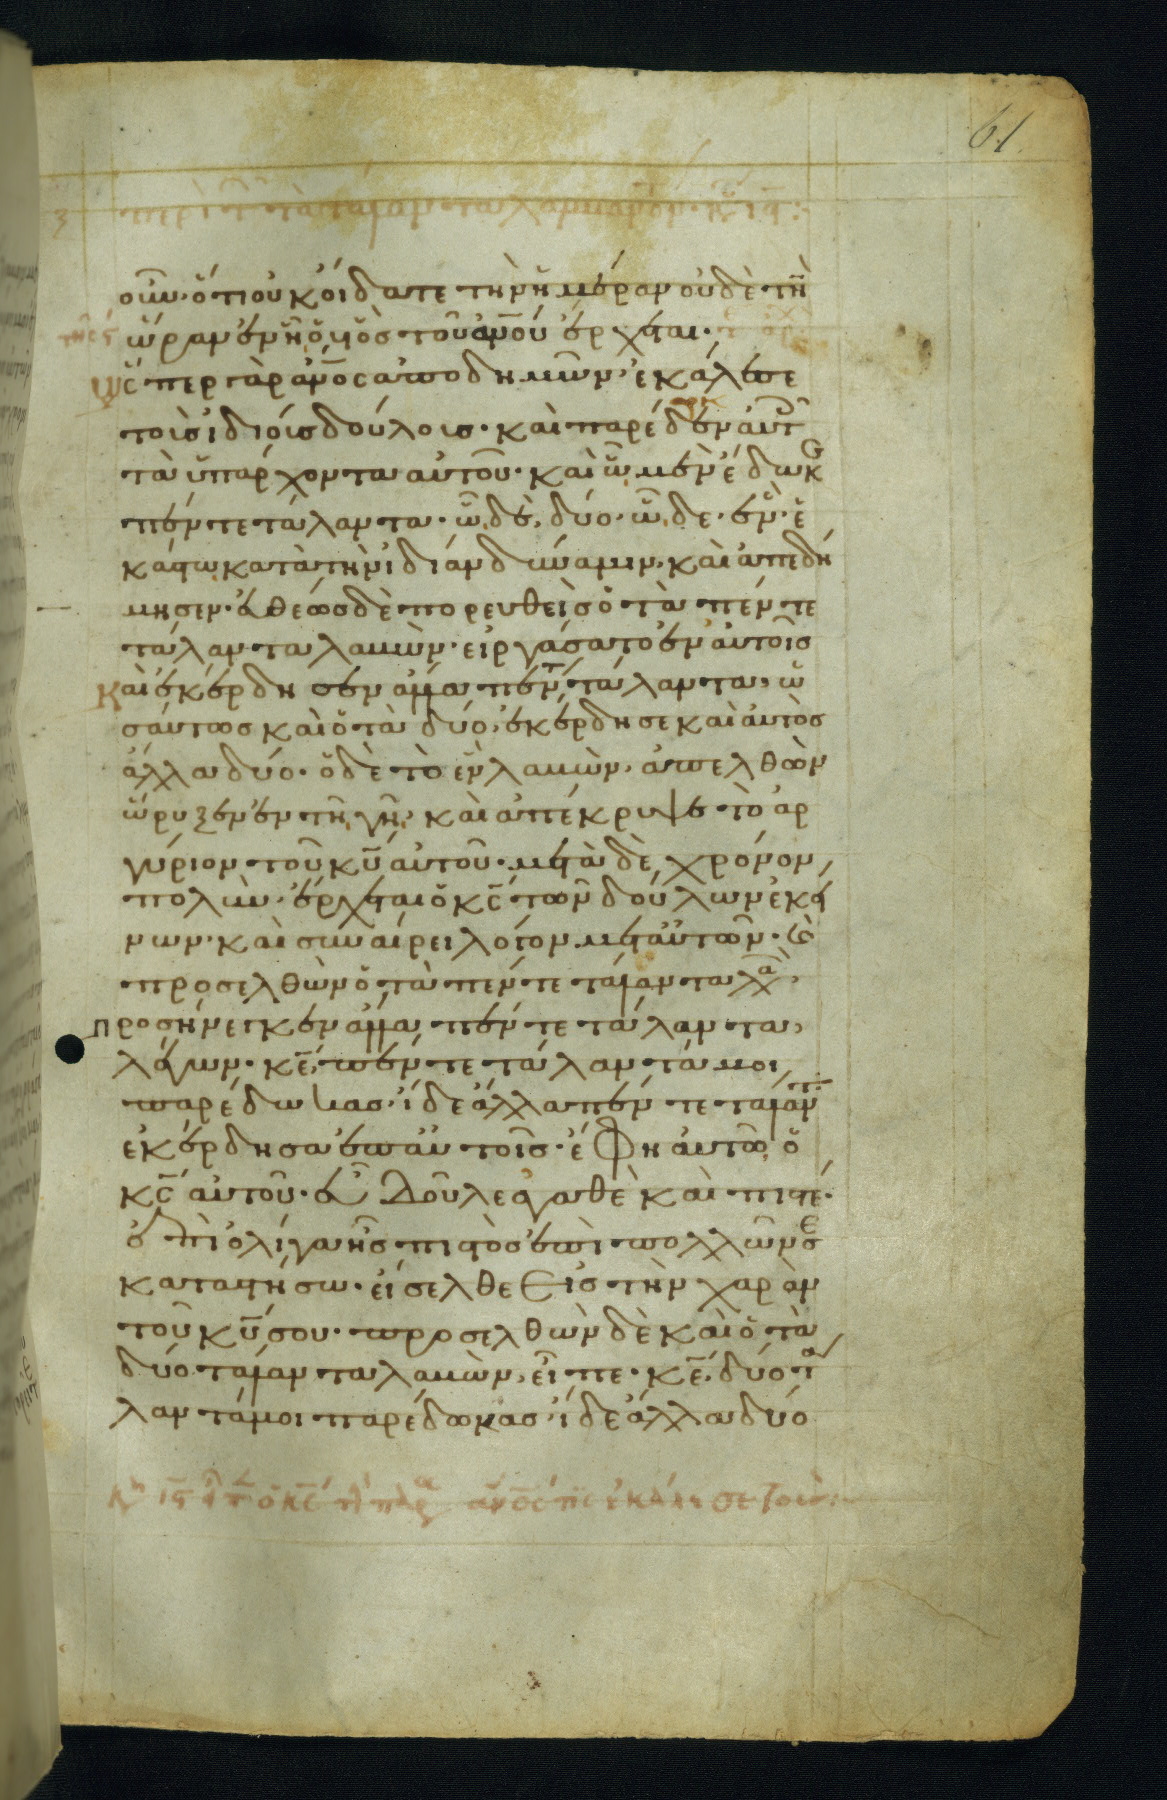 61
περὶ τῶν τὰ τάλαντα λαμβανόντων
οὖν· ὅτι οὐκ οἴδατε τὴν ἡμέραν οὐδὲ τὴν
ὥραν ἐν ἧ ὁ υἱὸς τοῦ ἀνου ἔρχεται·
Ὥσπερ γὰρ ἄνος ἀποδημῶν, ἐκάλεσε
τοῖς ἰδίοις δούλοις· καὶ παρέδωκεν αὐτ
τὰ ὑπάρχοντα αὐτοῦ· καὶ ὧ μὲν ἔδωκε
πέντε τάλαντα· ὧ δὲ, δύο· ὧ δε· ἕν· ἑ
κάστω κατὰ τὴν ἰδίαν δύναμιν, καὶ ἀπεδή
μησεν· εὐθέως δὲ πορευθεὶς ὁ τὰ πέντε
τάλαντα λαβὼν· εἰργάσατο ἐν αὐτοῖς
Καὶ ἐκέρδησεν ἄλλα πέντε τάλαντα, ὡ
σαύτως καὶ ὁ τὰ δύο, ἐκέρδησε καὶ αὐτὸς
ἄλλα δύο· ὁ δὲ τὸ ἓν λαβὼν, ἀπελθὼν
ὤρυξεν ἐν τῆ γῆ, καὶ ἀπέκρυψε τὸ ἀρ
γύριον τοῦ κυ αὐτοῦ· μετὰ δὲ χρόνον
πολὺν, ἔρχεται ὁ κς τῶν δούλων ἐκεί
νων· καὶ συναίρει λόγον μετ αὐτῶν· καὶ
προσελθὼν ὁ τὰ πέντε τάλαντα λα
προσήνεικεν ἄλλα πέντε τάλαντα,
λέγων· κε, πέντε τάλαντά μοι
παρέδωκας· ἴδε ἄλλα πέντε τάλαντ
ἐκέρδησα ἐπ αὐτοῖς· ἔφη αὐτῶ ὁ
κς αὐτοῦ· εὖ δοῦλε ἀγαθὲ καὶ πιστέ·
ἐπὶ ὀλίγα ἦς πιστὸς ἐπὶ πολλῶν σε
καταστήσω· εἴσελθε εἰς τὴν χαρὰν
τοῦ κυ σου· προσελθὼν δὲ καὶ ὁ τὰ
δύο τάλαντα λαβὼν, εἶπε· κε, δύο τά
λαντά μοι παρέδωκας· ἴδε ἄλλα δύο